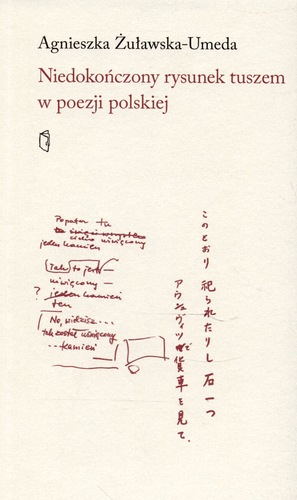 Agnieszka Żuławska-Umeda
Niedokończony rysunek tuszem
w poezji polskiej
Popatrz tu
uświęcony
jeden kamień
(jak) to jest —
uświęcony —
? jeden kamień
ten
No, widzisz...
tak został uświęcony
... kamień
このとおり 祀られたりし 石一つ
アウシュヴィッツで貨車を見て。